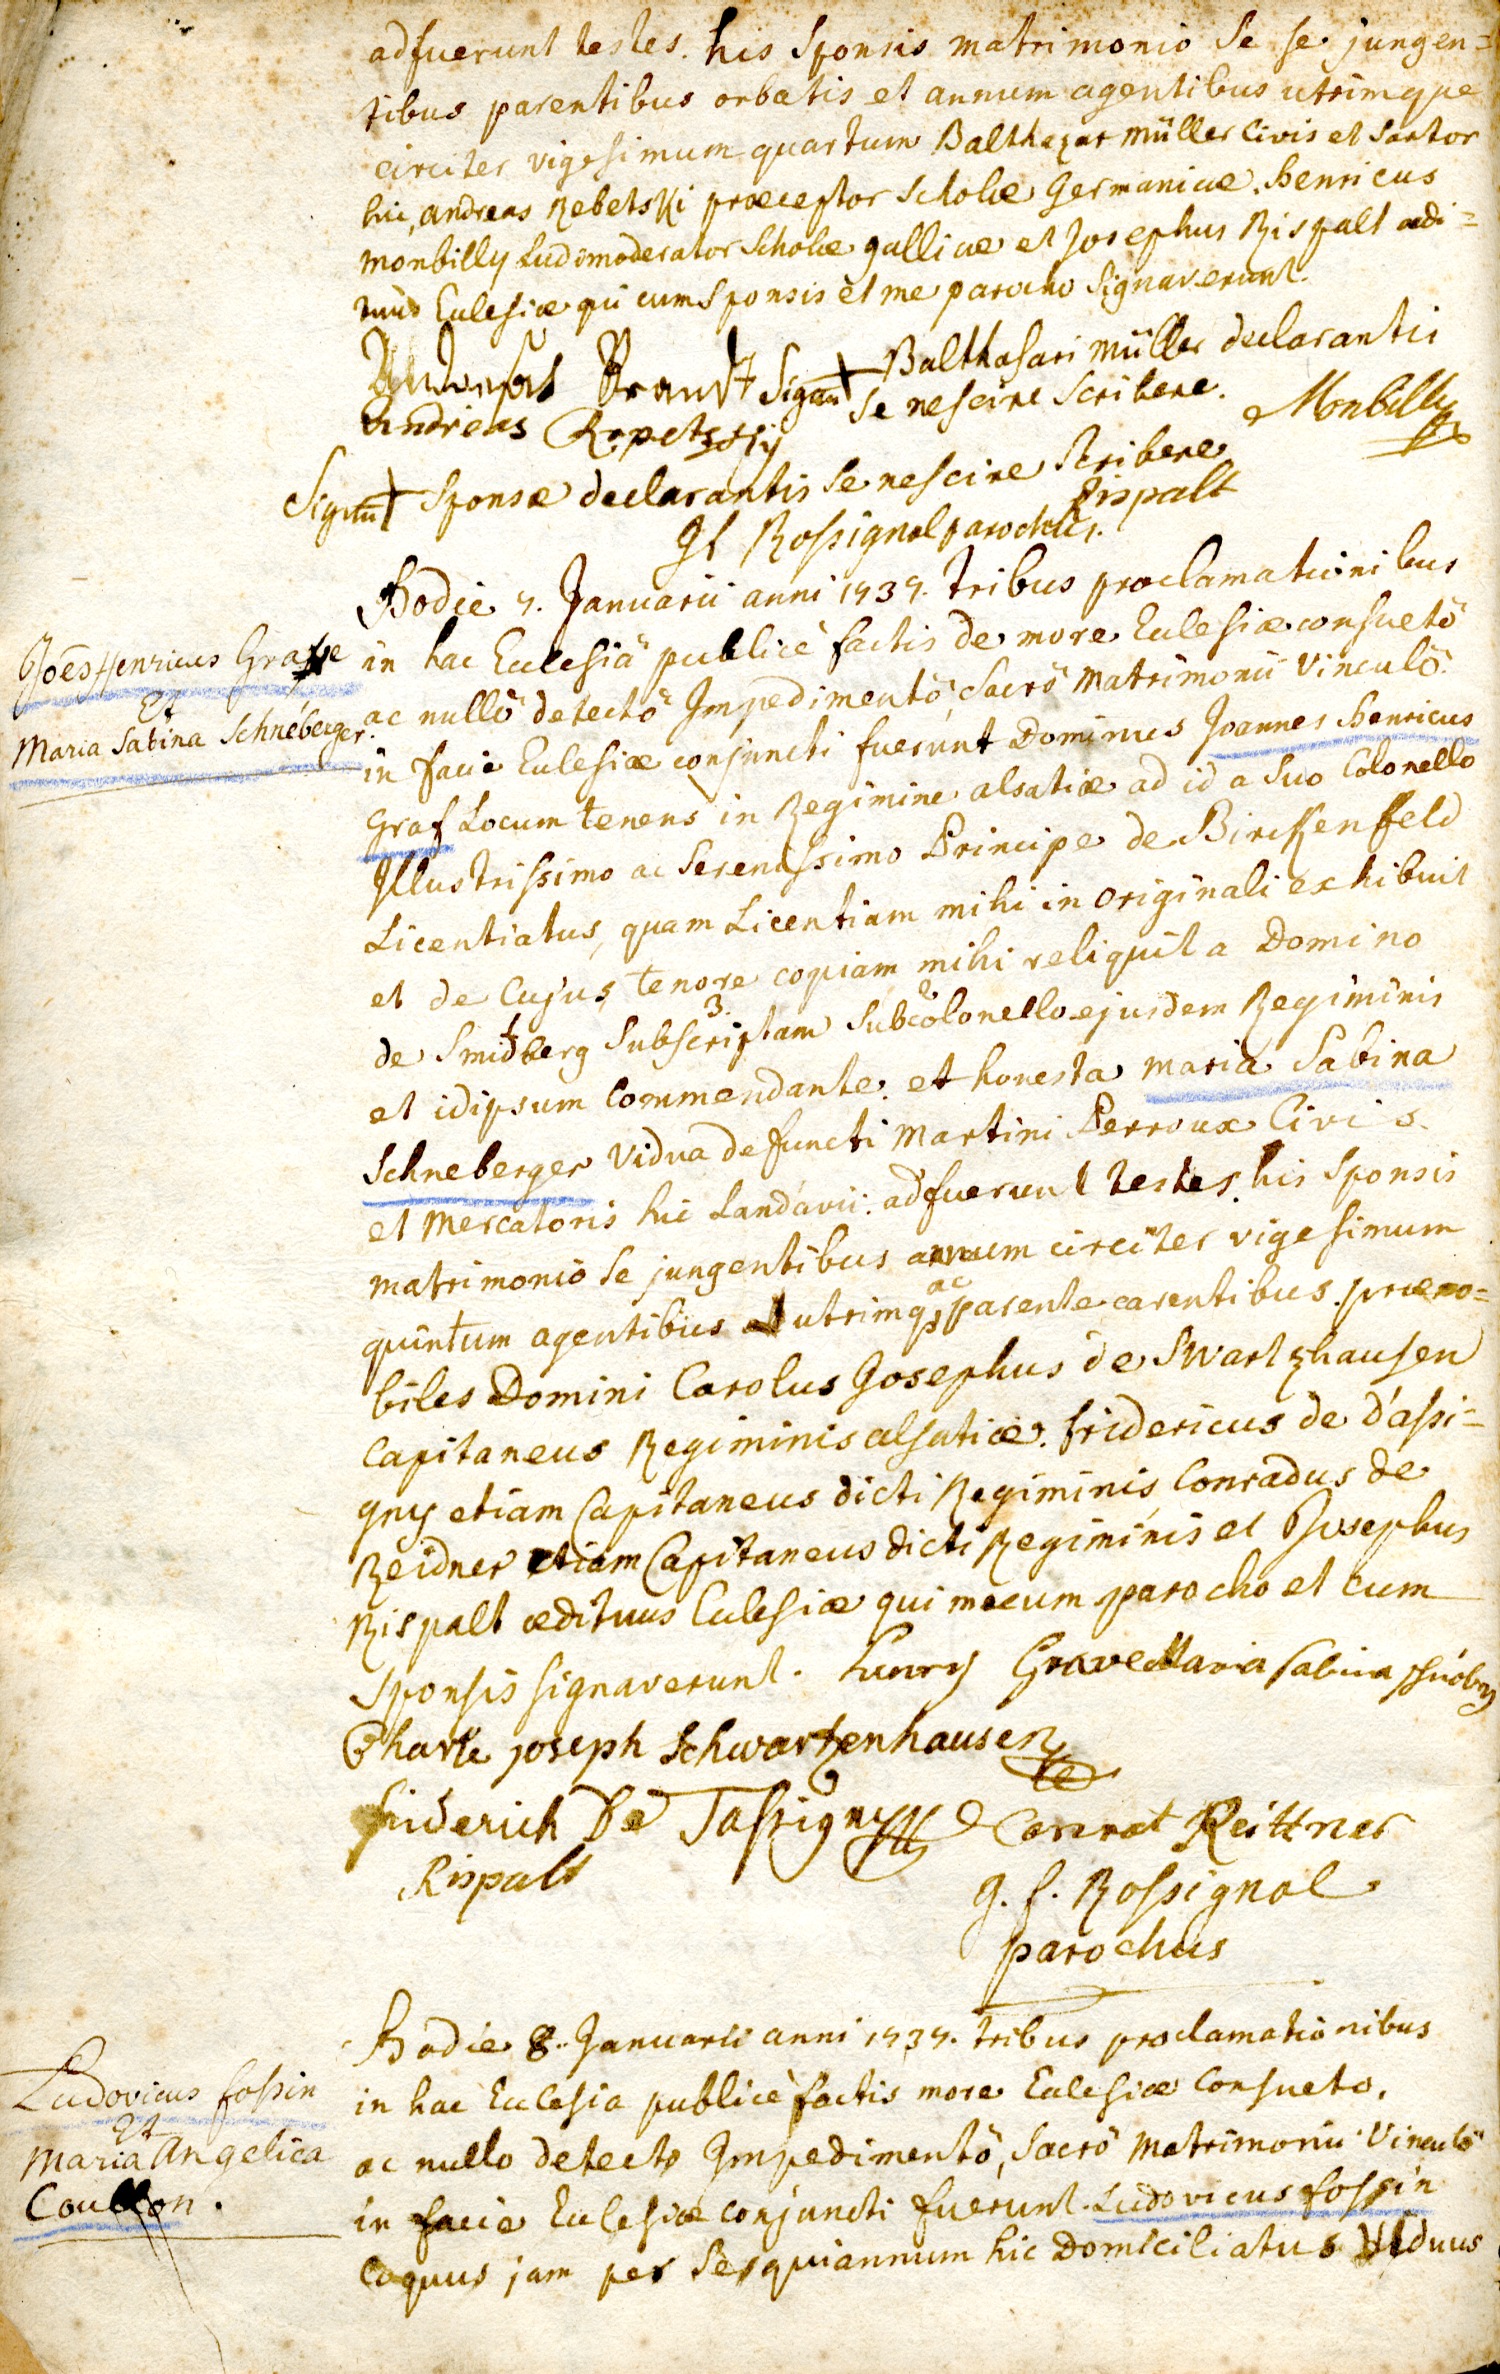 adfuerunt testes. his Sponsis matrimonio se se jungen=
tibus parentibus orbatis et annum agentibus utrimque
circiter vigesimum quartum Balthazar müller Civis et Sartor
hic, andreas Rebetski præceptor Scholæ Germanicæ. henricus
monbilly Ludimoderator Scholæ gallicæ et Josephus Rispalt ædi=
tuus Eulesiæ qui cum Sponsis et me parocho Signaverunt.
Andreas Brandt Signū + Balthasari müller declarantis
se nescire scribere.
Andreas Rapetsky
Monbilly
Signū + Sponsæ declarantis se nescire scribere
Rispalt
Gf Rossignol parochus.
Hodie 7. Januarii anni 1737. tribus proclamationibus
Joēs Henricus Graffe
Et
Maria Sabina Schnéberger.
in hac Ecclesiâ publicè factis de more Ecclesiæ consuetô
ac nullô detectô Impedimentô, Sacrô matrimonii Vinculô
in facie Eclesiæ conjuncti fuerunt Dominus Joannes henricus
Graf Locum tenens in Regimine alsatiæ ad id a Suo Colonello
Illustrissimo ac Serenissimo Principe de Birckenfeld
Licentiatus, quam Licentiam mihi in originali exhibuit
et de Cujus tenore copiam mihi reliquit a Domino
de Smidberg Subscriptam Subcolonello ejusdem Regiminis
1 3. 2
et idipsum Commendante. et honesta maria Sabina
Schneberger Vidua defuncti Martini Perroux Civis
et Mercatoris hic Landavii. adfuerunt testes. his Sponsis
matrimonio se jungentibus annum circiter vigesimum
quintum agentibus utrimq; ac parente carentibus. præno=
biles Domini Carolus Josephus de Swartzhausen
Capitaneus Regiminis alsatiæ. fridericus de d'assi=
gny etiam Capitaneus dicti Regiminis, Conradus de
Reidner etiam Capitaneus dicti Regiminis et Josephus
Rispalt ædituus Eclesiæ qui mecum parocho et cum
Sponsis signaverunt. henry Grave Maria sabina
Charle joseph Schwartzenhausen
friderich De Tassigny Conrat Reittner
Rispalt
g. f. Rossignol
parochus
Hodie 8. Januarii anni 1737. tribus proclamationibus
Ludovicus fossin
Et
Maria Angelica
in hac Ecclesia publicè factis more Ecclesiæ Consueto,
ac nullo detecto Impedimentô, Sacrô Matrimonii Vinculô
in facie Ecclesiæ conjuncti fuerunt. Ludovicus fossin
Coquus jam per Sesquiannum hic Domiciliatus Viduus